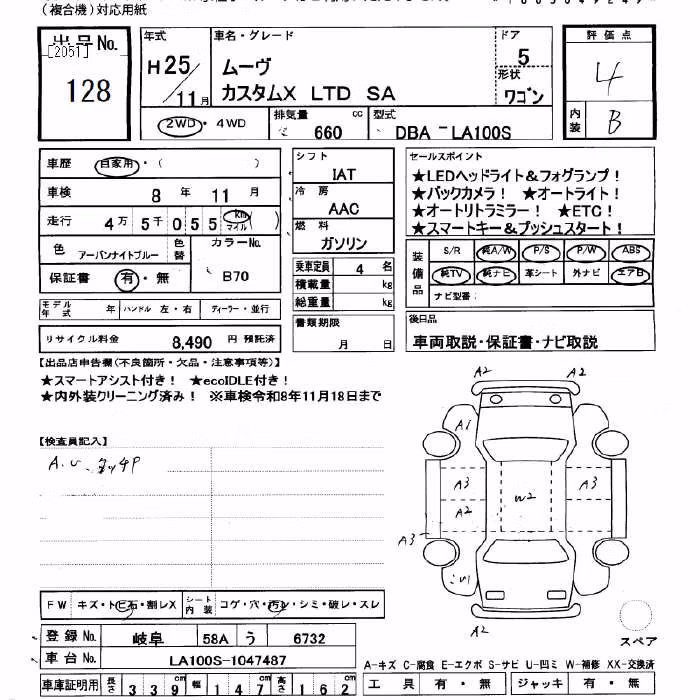 （複合機）対応用紙
出品No.
[2051]
128
年式
H25/11月
車名・グレード
ムーヴ
カスタムX LTD SA
ドア
5
形状
ワゴン
2WD・4WD
排気量 660 cc
型式 DBA-LA100S
評価点
4
内装
B
車歴 自家用・（ ）
車検 8 年 11 月
走行 4万 5千 0 5 5 km マイル ( )
色 アーバンナイトブルー 色替
カラーNo.
B70
保証書 有・無
シフト
IAT
冷房
AAC
燃料
ガソリン
乗車定員 4 名
積載量 kg
総重量 kg
書類期限
月 日
セールスポイント
★LEDヘッドライト&フォグランプ！
★バックカメラ！ ★オートライト！
★オートリトラミラー！ ★ETC！
★スマートキー&プッシュスタート！
装備品
S/R 純A/W P/S P/W ABS
純TV 純ナビ 革シート 外ナビ エアB
ナビ型番：
モデル年式 年 ハンドル 左・右 ディーラー・並行
リサイクル料金 8,490 円 預託済
後日品
車両取説・保証書・ナビ取説
【出品店申告欄（不良箇所・欠品・注意事項等）】
★スマートアシスト付き！ ★ecoIDLE付き！
★内外装クリーニング済み！ ※車検令和8年11月18日まで
【検査員記入】
A.U.タッチP
A2
A2
A1
A3
A2
W2
A3
A3
A2
スペア
FW キズ・トビ石・割レX
シート内装 コゲ・穴・汚レ・シミ・破レ・スレ
登録No. 岐阜 58A う 6732
車台No. LA100S-1047487
車庫証明用 長さ 339cm 幅 147cm 高さ 162cm
A-キズ C-腐食 E-エクボ S-サビ U-凹ミ W-補修 XX-交換済
工具 有・無 ジャッキ 有・無